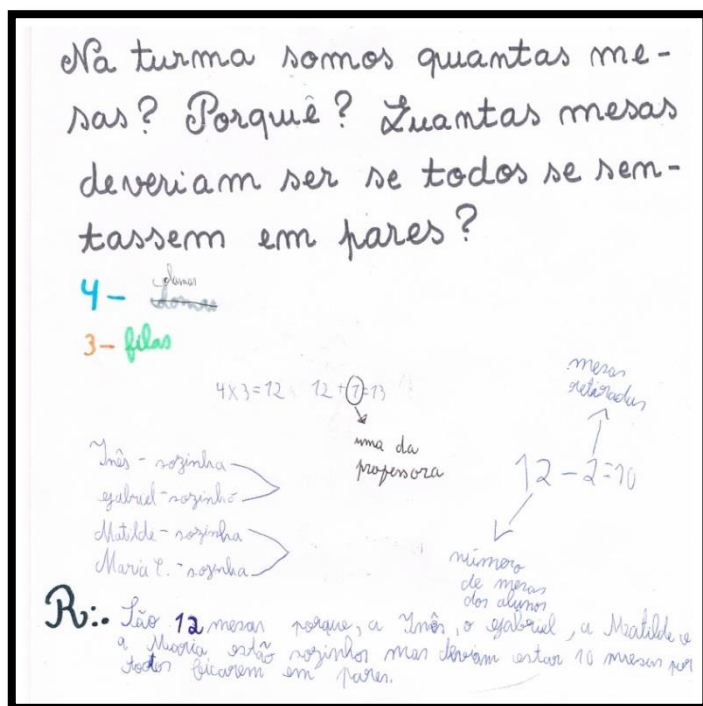 Na turma somos quantas me-
sas? Porquê? Quantas mesas
deveriam ser se todos se sen-
tassem em pares?
4-
3- filas
4x3=12 12+1=13
uma da
professora
mesas
retiradas
12-2=10
número
de mesas
dos alunos
Inês - sozinha
Gabriel - sozinho
Matilde - sozinha
Maria C. - sozinha
R:. São 12 mesas porque, a Inês, o Gabriel, a Matilde e
a Maria estão sozinhos mas deviam estar 10 mesas por
todos ficarem em pares.